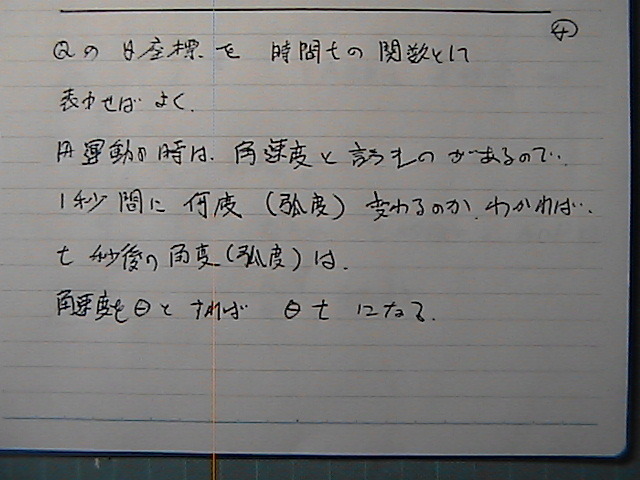 ④
Qの y座標を 時間tの関数として
表わせば よく、
円運動の時は、角速度と言うものがあるので、
1秒間に 何度(弧度)変わるのか、わかれば、
t秒後の角度(弧度)は、
角速度をθとすれば θt になる。